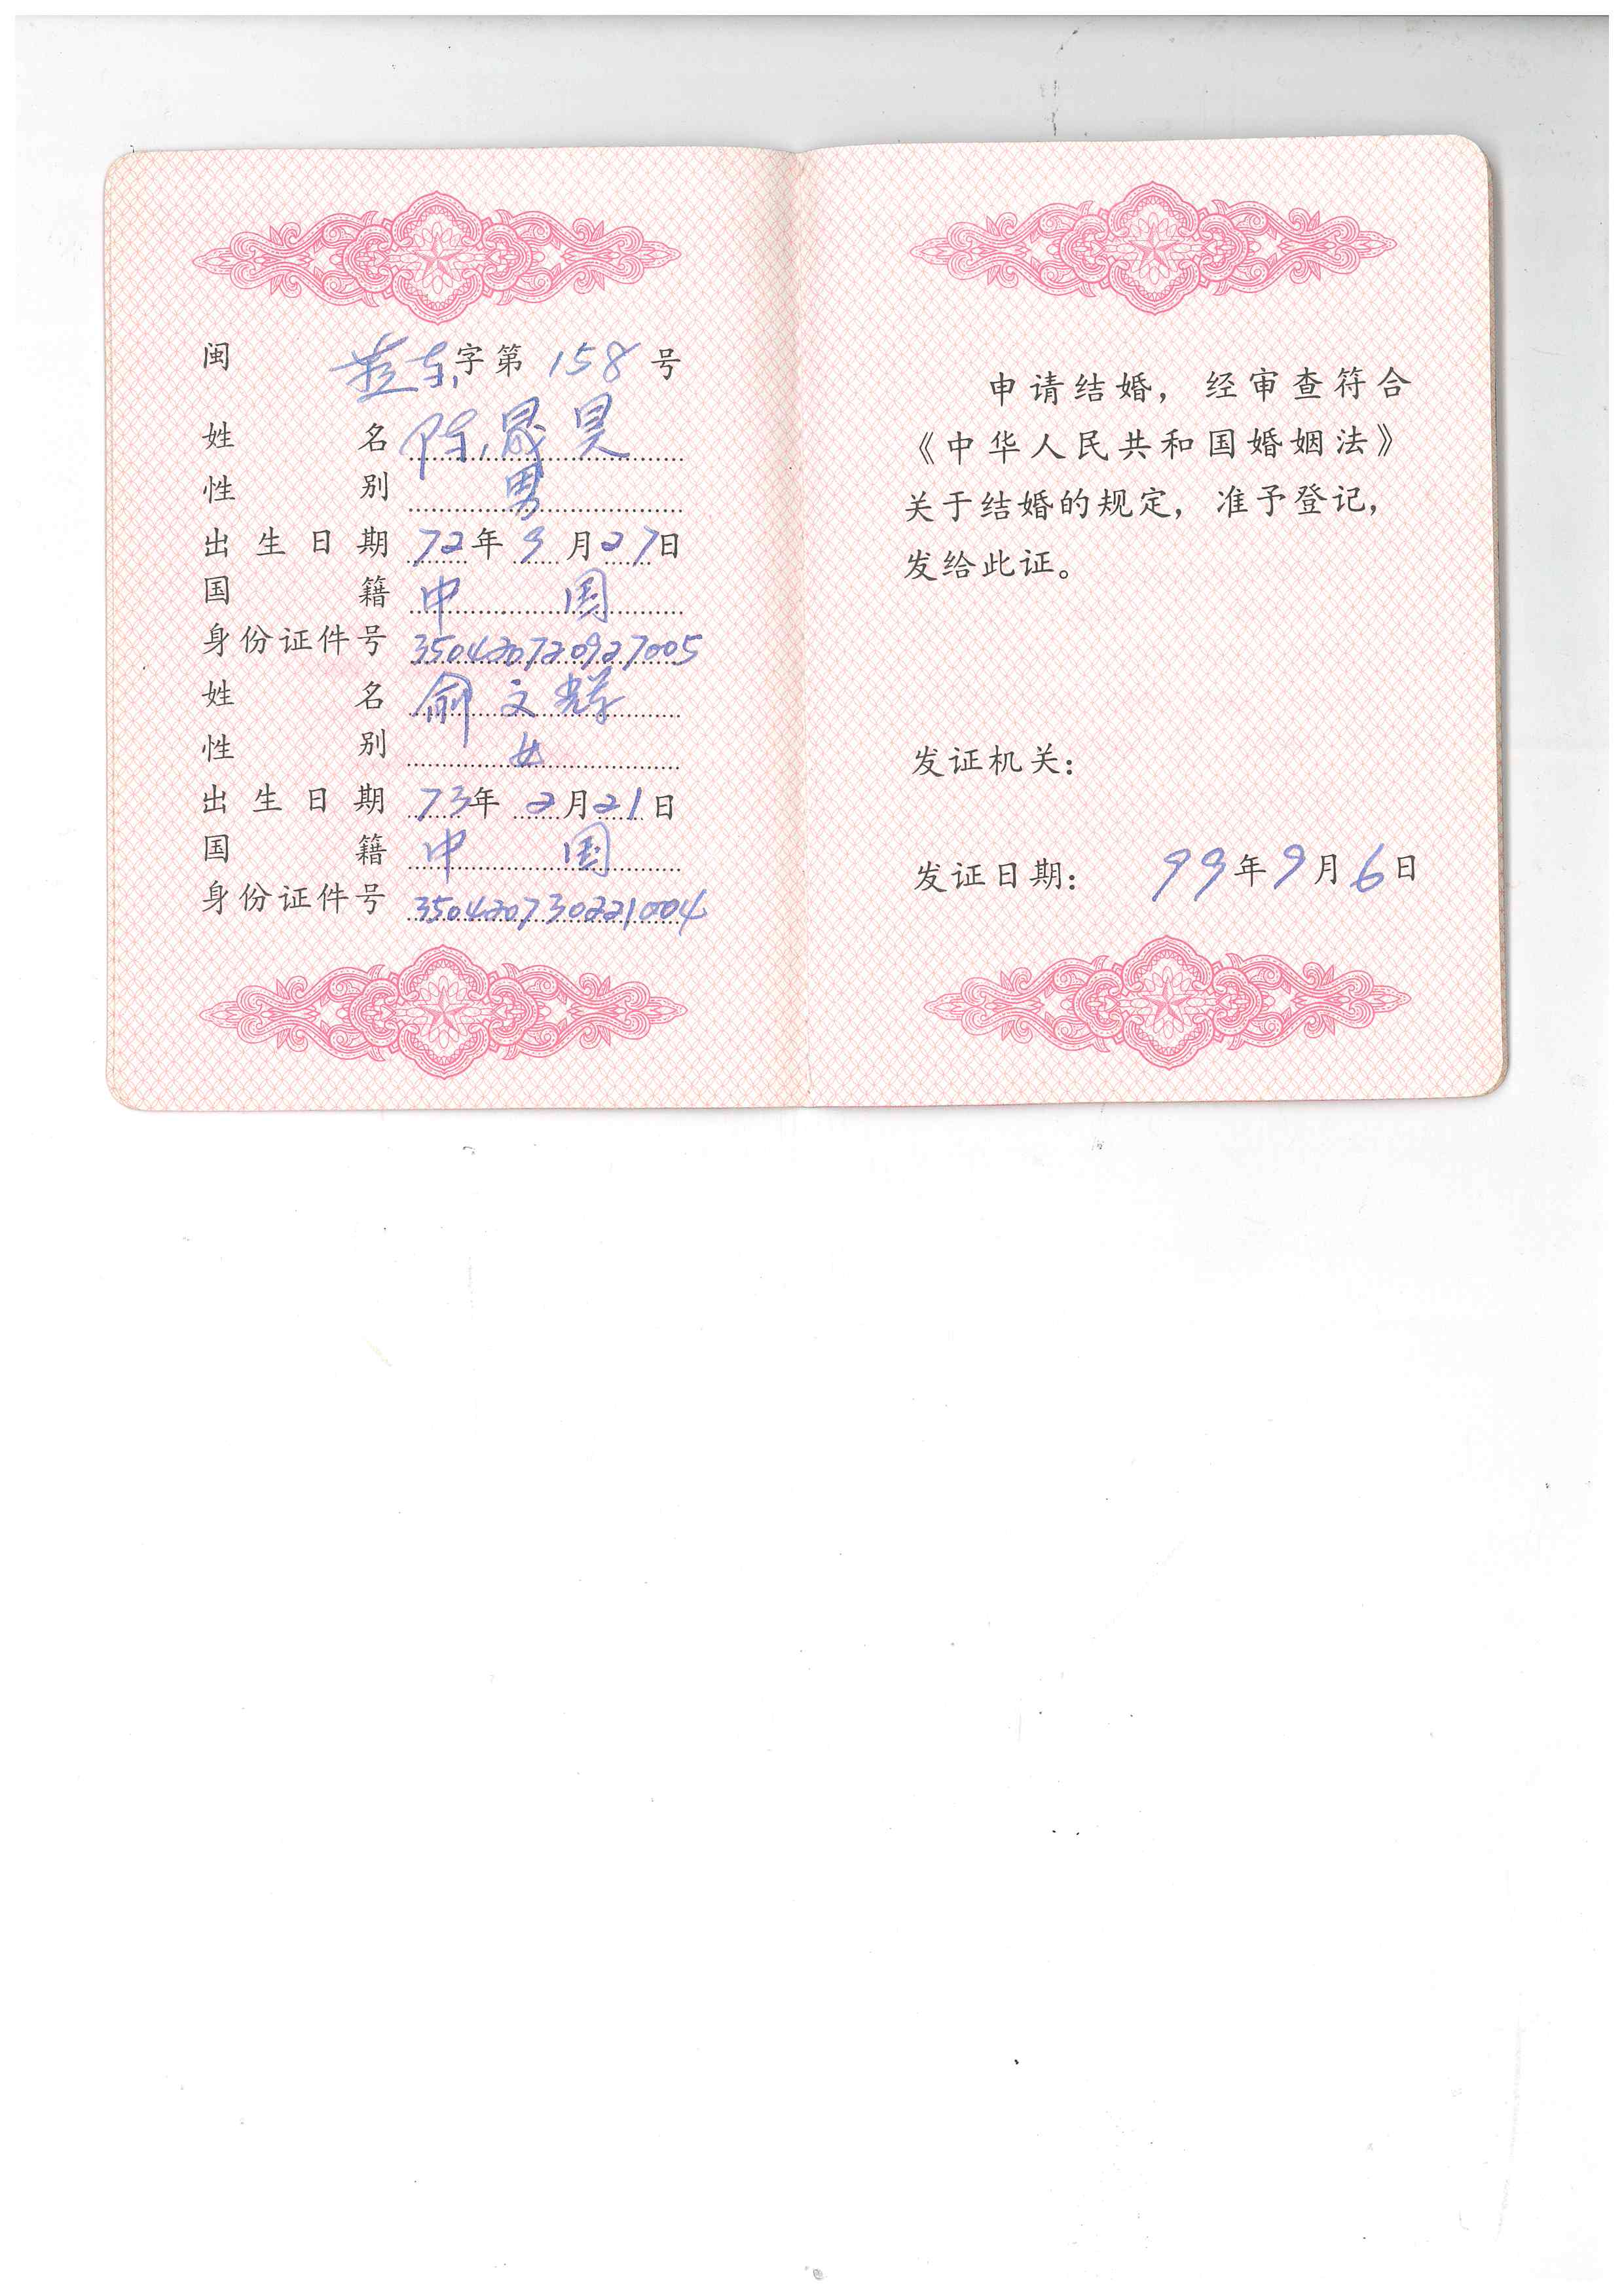 闽 燕东字第 158 号
姓 名 陈晟昊
性 别 男
出生日期 72年 9月27日
国 籍 中 国
身份证件号 350420720927005
姓 名 俞文辉
性 别 女
出生日期 73年 2月21日
国 籍 中 国
身份证件号 350420730221004
申请结婚，经审查符合
《中华人民共和国婚姻法》
关于结婚的规定，准予登记，
发给此证。
发证机关：
发证日期： 99年9月6日